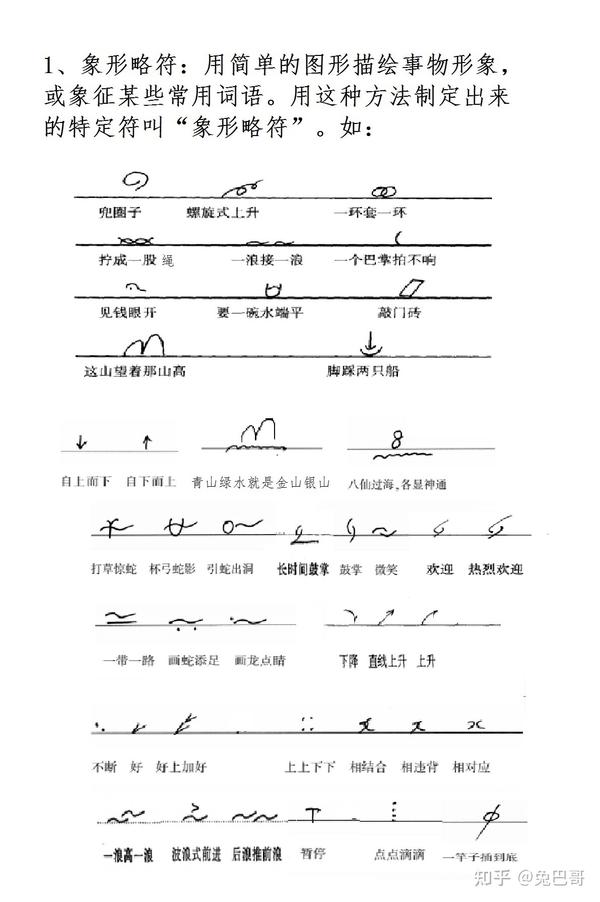 1、象形略符：用简单的图形描绘事物形象，
或象征某些常用词语。用这种方法制定出来
的特定符叫“象形略符”。如：
兜圈子 螺旋式上升 一环套一环
拧成一股绳 一浪接一浪 一个巴掌拍不响
见钱眼开 要一碗水端平 敲门砖
这山望着那山高 脚踩两只船
自上而下 自下而上 青山绿水就是金山银山 八仙过海，各显神通
打草惊蛇 杯弓蛇影 引蛇出洞 长时间鼓掌 鼓掌 微笑 欢迎 热烈欢迎
一带一路 画蛇添足 画龙点睛 下降 直线上升 上升
不断 好 好上加好 上上下下 相结合 相违背 相对应
一浪高一浪 波浪式前进 后浪推前浪 暂停 点点滴滴 一竿子插到底
知乎 @兔巴哥